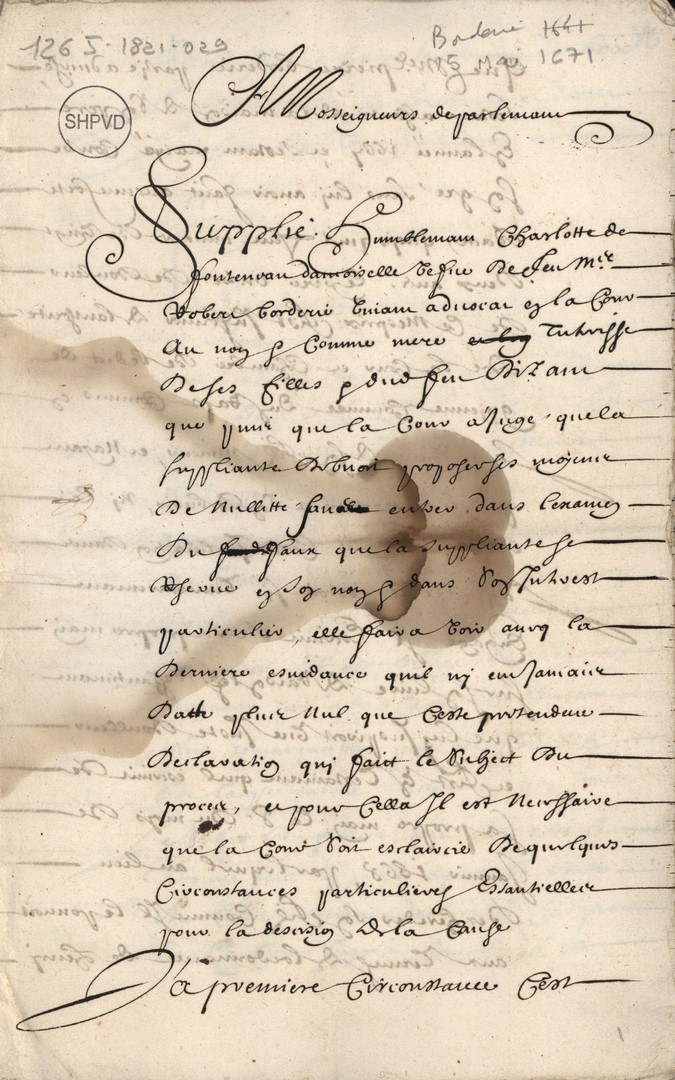 126 I. 1821-029
Borderie 1641
15 Mai 1671
SHPVD
A Mosseigneurs de parlemant
Supplie Humblemant Charlotte de
fonteneau damoiselle vefve de feu Mre
Robert borderie vivant advocat en la Cour
Au nom q Comme mere et leg Tutrisse
De ses filles q dud feu Dizant
que puis que la Cour a Juge que la
suppliante Debvoit proposer ses moyens
De Nullitte sans entrer dans l'examen
Du faux que la suppliante se
Reserve en son nom q dans son Intrest
particulier, elle faira voir aveq la
Derniere esvidance quil ny eut Jamais
Datte plus Nul que Ceste pretendue
Declaration qui faict le Subject Du
proces, et pour Cella Il est Necessaire
que la Cour Soit esclaircie De quelques
Circonstances particulieres Essantielles
pour la descision De la Cause
La premiere Circonstance Cest